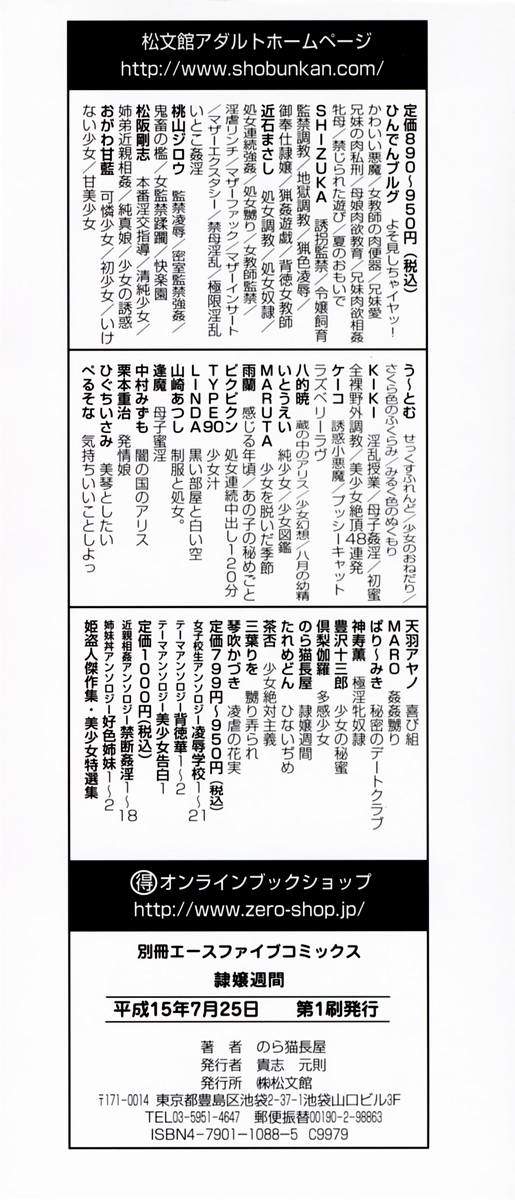 松文館アダルトホームページ
http://www.shobunkan.com/
定価890〜950円(税込)
ひんでんブルグ よそ見しちゃイヤッ!
かわいい悪魔/女教師の肉便器/兄妹愛
兄妹の肉私刑/母娘肉欲教育/兄妹肉欲相姦
牝母/禁じられた遊び/夏のおもいで
SHIZUKA 誘拐監禁/令嬢飼育
監禁調教/地獄調教/猟色凌辱/
御奉仕隷嬢/猟姦遊戯/背徳女教師
近石まさし 処女調教/処女奴隷/
処女連続強姦/処女嬲り/女教師監禁/
淫虐リンチ/マザーファック/マザーインサート
/マザーエクスタシー/禁母淫乱/極限淫乱
いとこ姦淫
桃山ジロウ 監禁凌辱/密室監禁強姦/
鬼畜の檻/女監禁蹂躙 快楽園
松阪剛志 本番淫交指導/清純少女/
姉弟近親相姦/純真娘 少女の誘惑
おがわ甘藍 可憐少女/初少女/いけ
ない少女/甘美少女
う〜とむ せっくすふれんど/少女のおねだり/
さくら色のふくらみ/みるく色のぬくもり
KIKI 淫乱授業/母子姦淫/初蜜
全裸野外調教/美少女絶頂48連発
ケーコ 誘惑小悪魔/プッシーキャット
ラズベリーラヴ
八的暁 蔵の中のアリス/少女幻想/八月の幼精
いとうえい 純少女/少女図鑑
MARUTA 少女を脱いだ季節
雨蘭 感じる年頃/あの子の秘めごと
ビクビクン 処女連続中出し120分
TYPE90 少女汁
LINDA 黒い部屋と白い空
山崎あつし 制服と処女。
逢魔 母子蜜淫
中村みずも 闇の国のアリス
栗本重治 発情娘
ひぐちいさみ 美琴としたい
ぺるそな 気持ちいいことしよっ
天羽アヤノ 喜び組
MARO 姦姦嬲り
ぱり〜みき 秘密のデートクラブ
神寿薫 極淫牝奴隷
豊沢十三郎 少女の秘蜜
倶梨伽羅 多感少女
のら猫長屋 隷嬢週間
たれめどん ひないぢめ
茶否 少女絶対主義
三葉りを 嬲り弄られ
琴吹かづき 凌虐の花実
定価799円〜950円(税込)
女子校生アンソロジー凌辱学校1〜21
テーマアンソロジー背徳華1〜2
テーマアンソロジー美少女告白1
定価1000円(税込)
近親相姦アンソロジー禁断姦淫1〜18
姉妹丼アンソロジー好色姉妹1〜2
姫盗人傑作集・美少女特選集
得オンラインブックショップ
http://www.zero-shop.jp/
別冊エースファイブコミックス
隷嬢週間
平成15年7月25日 第1刷発行
著者 のら猫長屋
発行者 貴志 元則
発行所 ㈱松文館
〒171-0014 東京都豊島区池袋2-37-1池袋山口ビル3F
TEL03-5951-4647 郵便振替00190-2-98863
ISBN4-7901-1088-5 C9979